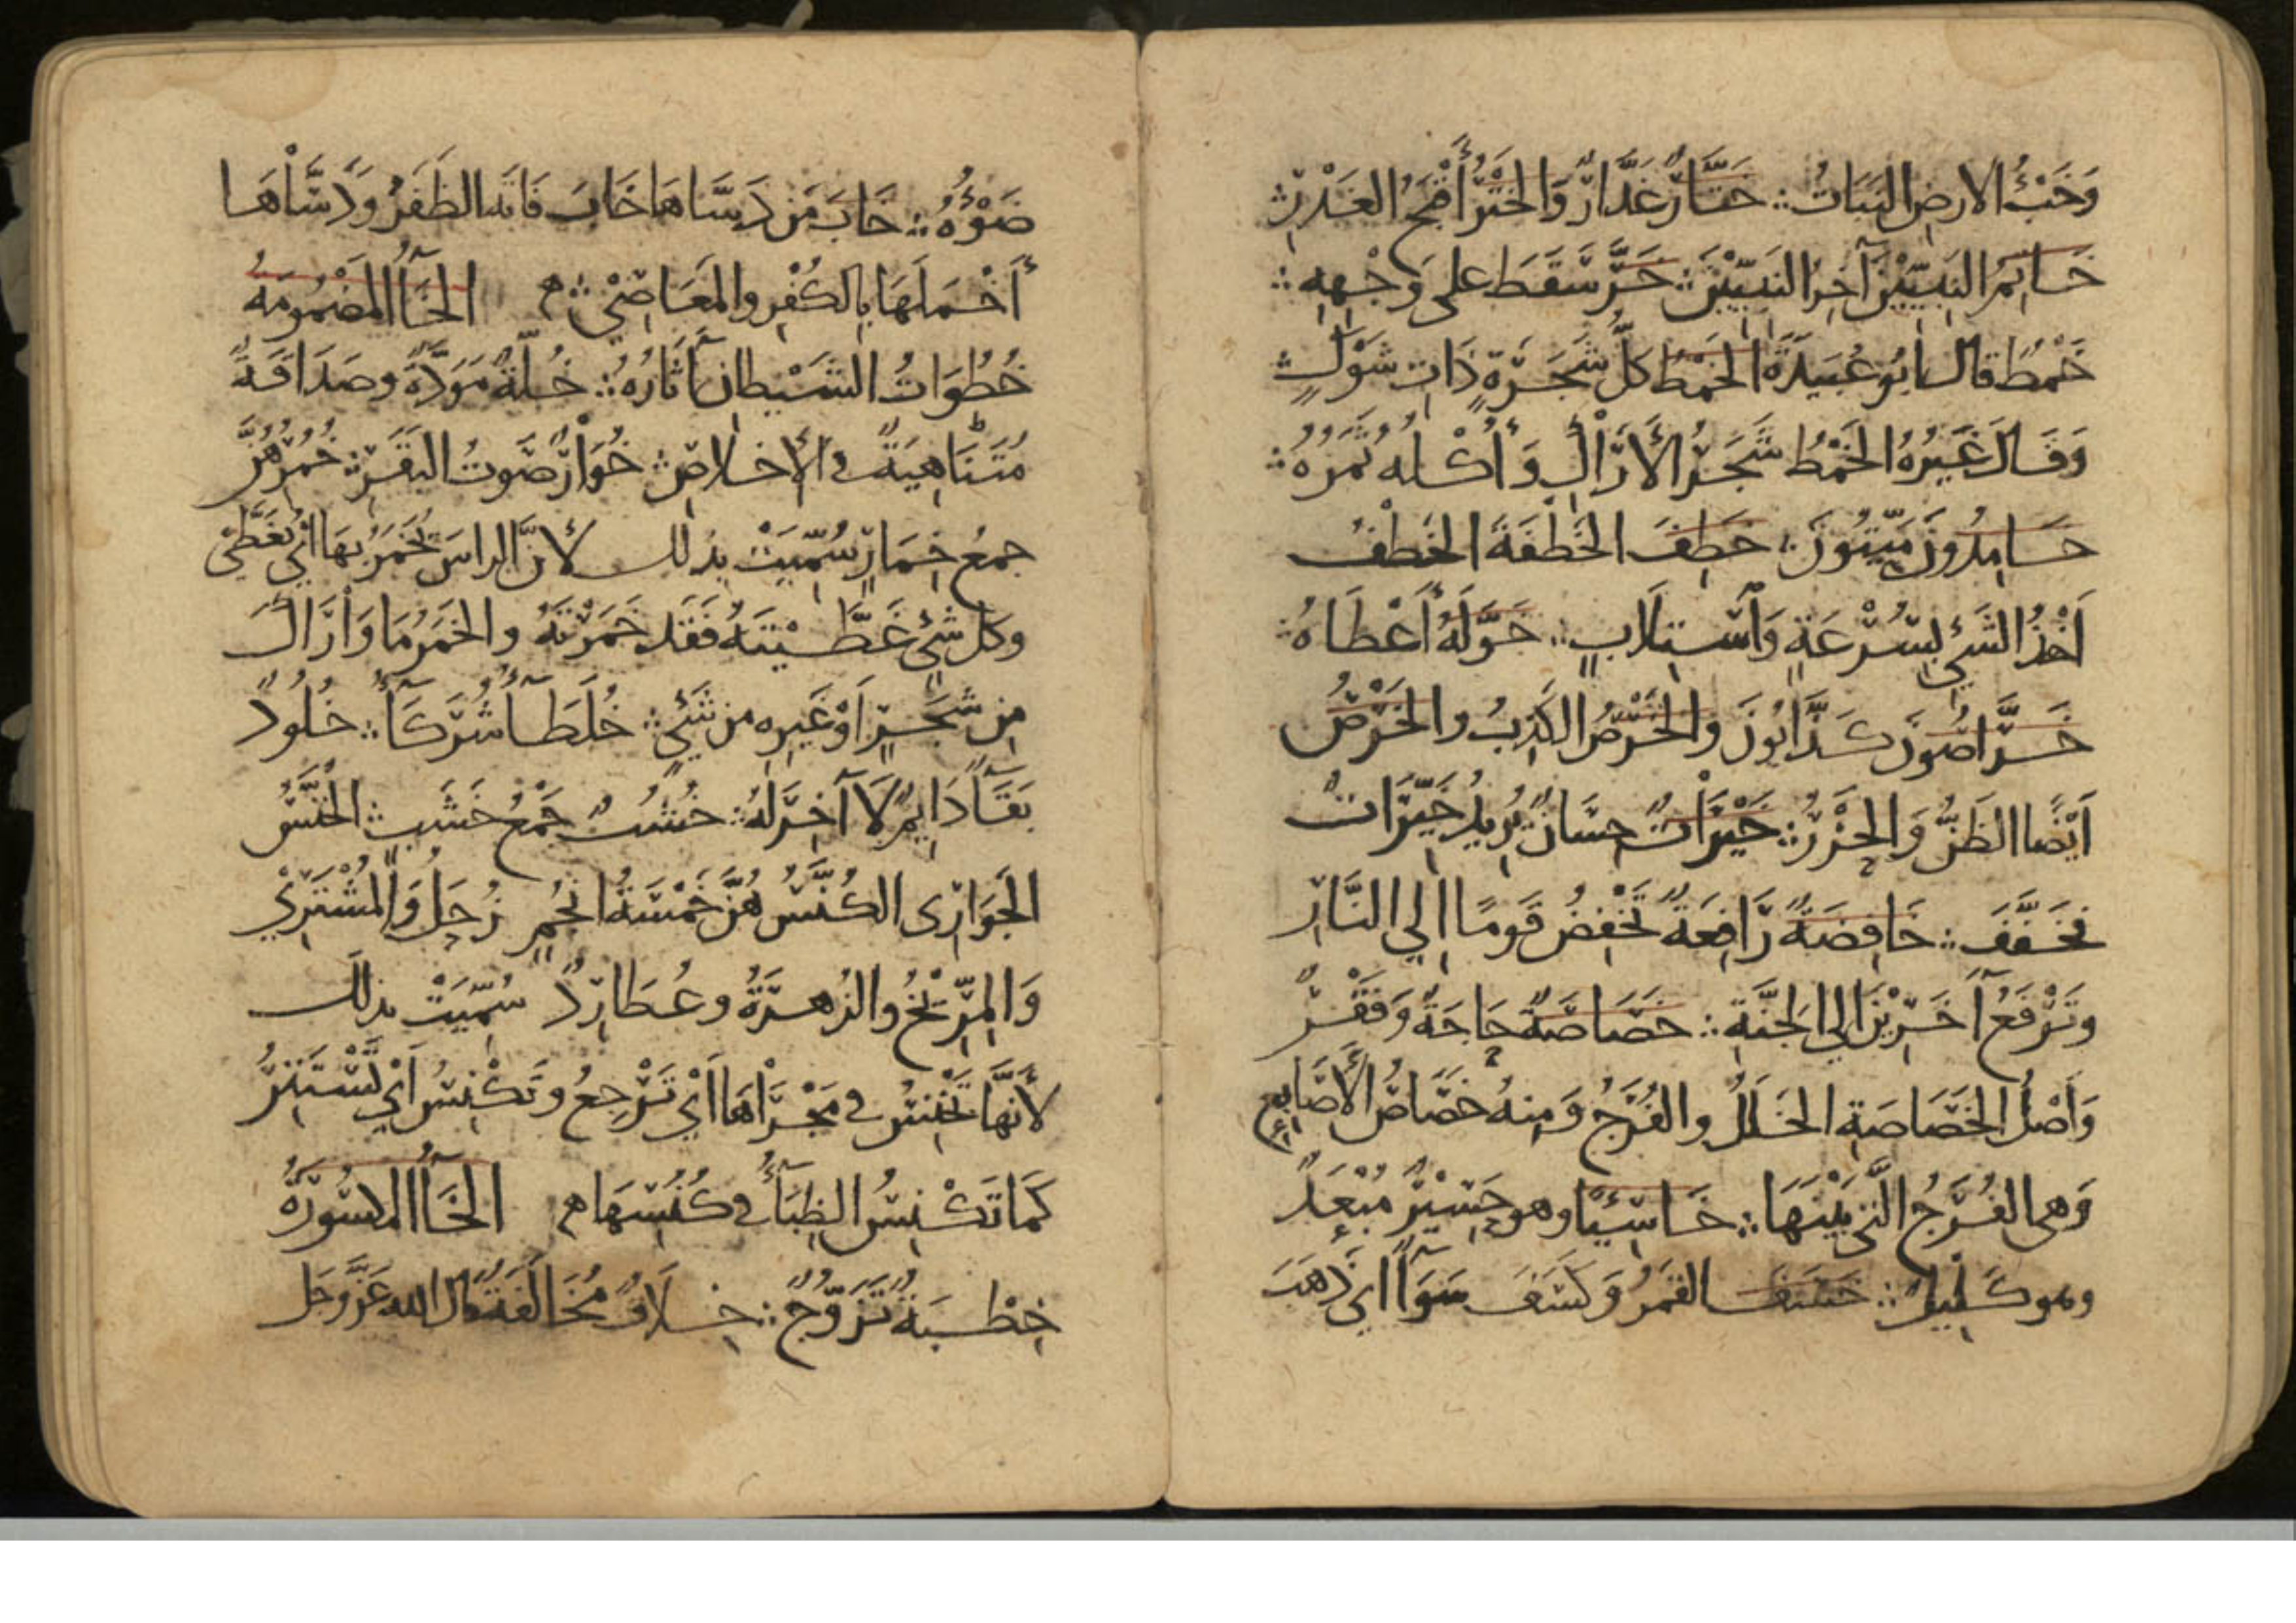 وَخَبْءُ الارضِ النَبَاتُ ؞ خَتَّارٌ غَدَّارٌ وَالْخَتْرُ أَقْبَحُ الغَدْرِ ؞
خَاتِمَ النَبِيِّيْنَ آخِرَ النَبِيِّيْنَ ؞ خَرَّ سَقَطَ على وَجْهِهِ ؞
خَمْطٍ قال ابُو عُبَيدَةَ الخَمْطُ كلُّ شَجَرَةٍ ذَاتِ شَوْكٍ ؞
وَقَالَ غَيْرُهُ الخَمْطُ شَجَرُ الأَرَاكِ وَأُكُلُهُ ثَمَرُهُ ؞
خَامِدُونَ مَيِّتُونَ ؞ خَطِفَ الخَطْفَةَ الخَطْفُ
أَخْذُ الشَيْءِ بِسُرْعَةٍ وَاسْتِلَابٍ ؞ خَوَّلَهُ أَعْطَاهُ ؞
خَرَّاصُونَ كَذَّابُونَ والخَرْصُ الكَذِبُ والخَرْصُ
اَيْضًا الظَنُّ وَالحِزْرُ ؞ خَيْرَاتٌ حِسَانٌ يُرِيدُ خَيِّرَاتٌ
فخَفَّفَ ؞ خَافِضَةٌ رَافِعَةٌ تَخْفِضُ قَومًا اِلي النَّارِ
وتَرْفَعُ آخَرِيْنَ اِلي الجَنَّةِ ؞ خَصَاصَةٌ حَاجَةٌ وَفَقْرٌ
وَأَصْلُ الخَصَاصَةِ الخَلَلُ والفُرَجُ وَمِنهُ خَصَاصُ الأَصَابِعِ
وَهى الفُرَجُ الَّتى بَيْنَهَا ؞ خَاسِئًا وهو حَسِيْرٌ مُبْعَدٌ
وهو كَلِيلٌ ؞ خَسَفَ القَمَرُ وَكَسَفَ سَوَآءٌ اي ذَهَبَ
ضَوْؤُهُ ؞ خَابَ مَن دَسَّاهَا خَابَ فَاتَه الظَفَرُ وَدَسَّاهَا
أَخْمَلَهَا بِالكُفْرِ والمَعَاصِيْ ؞ الخَآءُ المَضْمُومَةُ
خُطُوَاتُ الشَيْطانِ آثَارُهُ ؞ خُلَّةٌ مَوَدَّةٌ وصَدَاقَةٌ
مُتَنَاهِيَةٌ في الأخلاصِ ؞ خُوَارٌ صَوتُ البَقَرِ ؞ خُمُرِهِنَّ
جمعُ خِمَارٍ سُمِّيَتْ بذلك لأَنَّ الراسَ تُخَمَّرُ بهَا ايْ تُغَطَّيْ
وكل شَيْءٍ غَطَّيْتَهُ فَقَد خَمَرْتَهُ والخَمَرُ مَا وَارَاكَ
مِن شَجَرٍ اَوْ غَيرِهِ مِن شَيْءٍ ؞ خُلَطَآءُ شُرَكَآءُ ؞ خُلُودٌ
بَقَآءٌ دَايِمٌ لَا آخِرَ لَهُ ؞ خُشُبٌ جَمْعُ خَشَبٍ ؞ الخُنَّسُ
الجَوَارِى الكُنَّسُ هُنَّ خَمْسَةُ انجُمٍ زُحَلُ وَالمُشْتَرِيْ
وَالمِرِّيْخُ والزُهَرَةُ وعُطَارِدٌ سُمِّيَتْ بذلكَ
لأَنَّهَا تَخْنِسُ في مَجْرَاهَا اَيْ تَرْجِعُ وتَكْنِسُ اَيْ تَسْتَتِرُ
كَمَا تَكْنِسُ الظِبَآءُ في كُنُسِهَا الخَآءُ المكسُورَةُ
خِطْبَةٌ تَزَوُّجٌ ؞ خِلَافٌ مُخَالَفَةٌ قال الله عَزَّ وَجَل